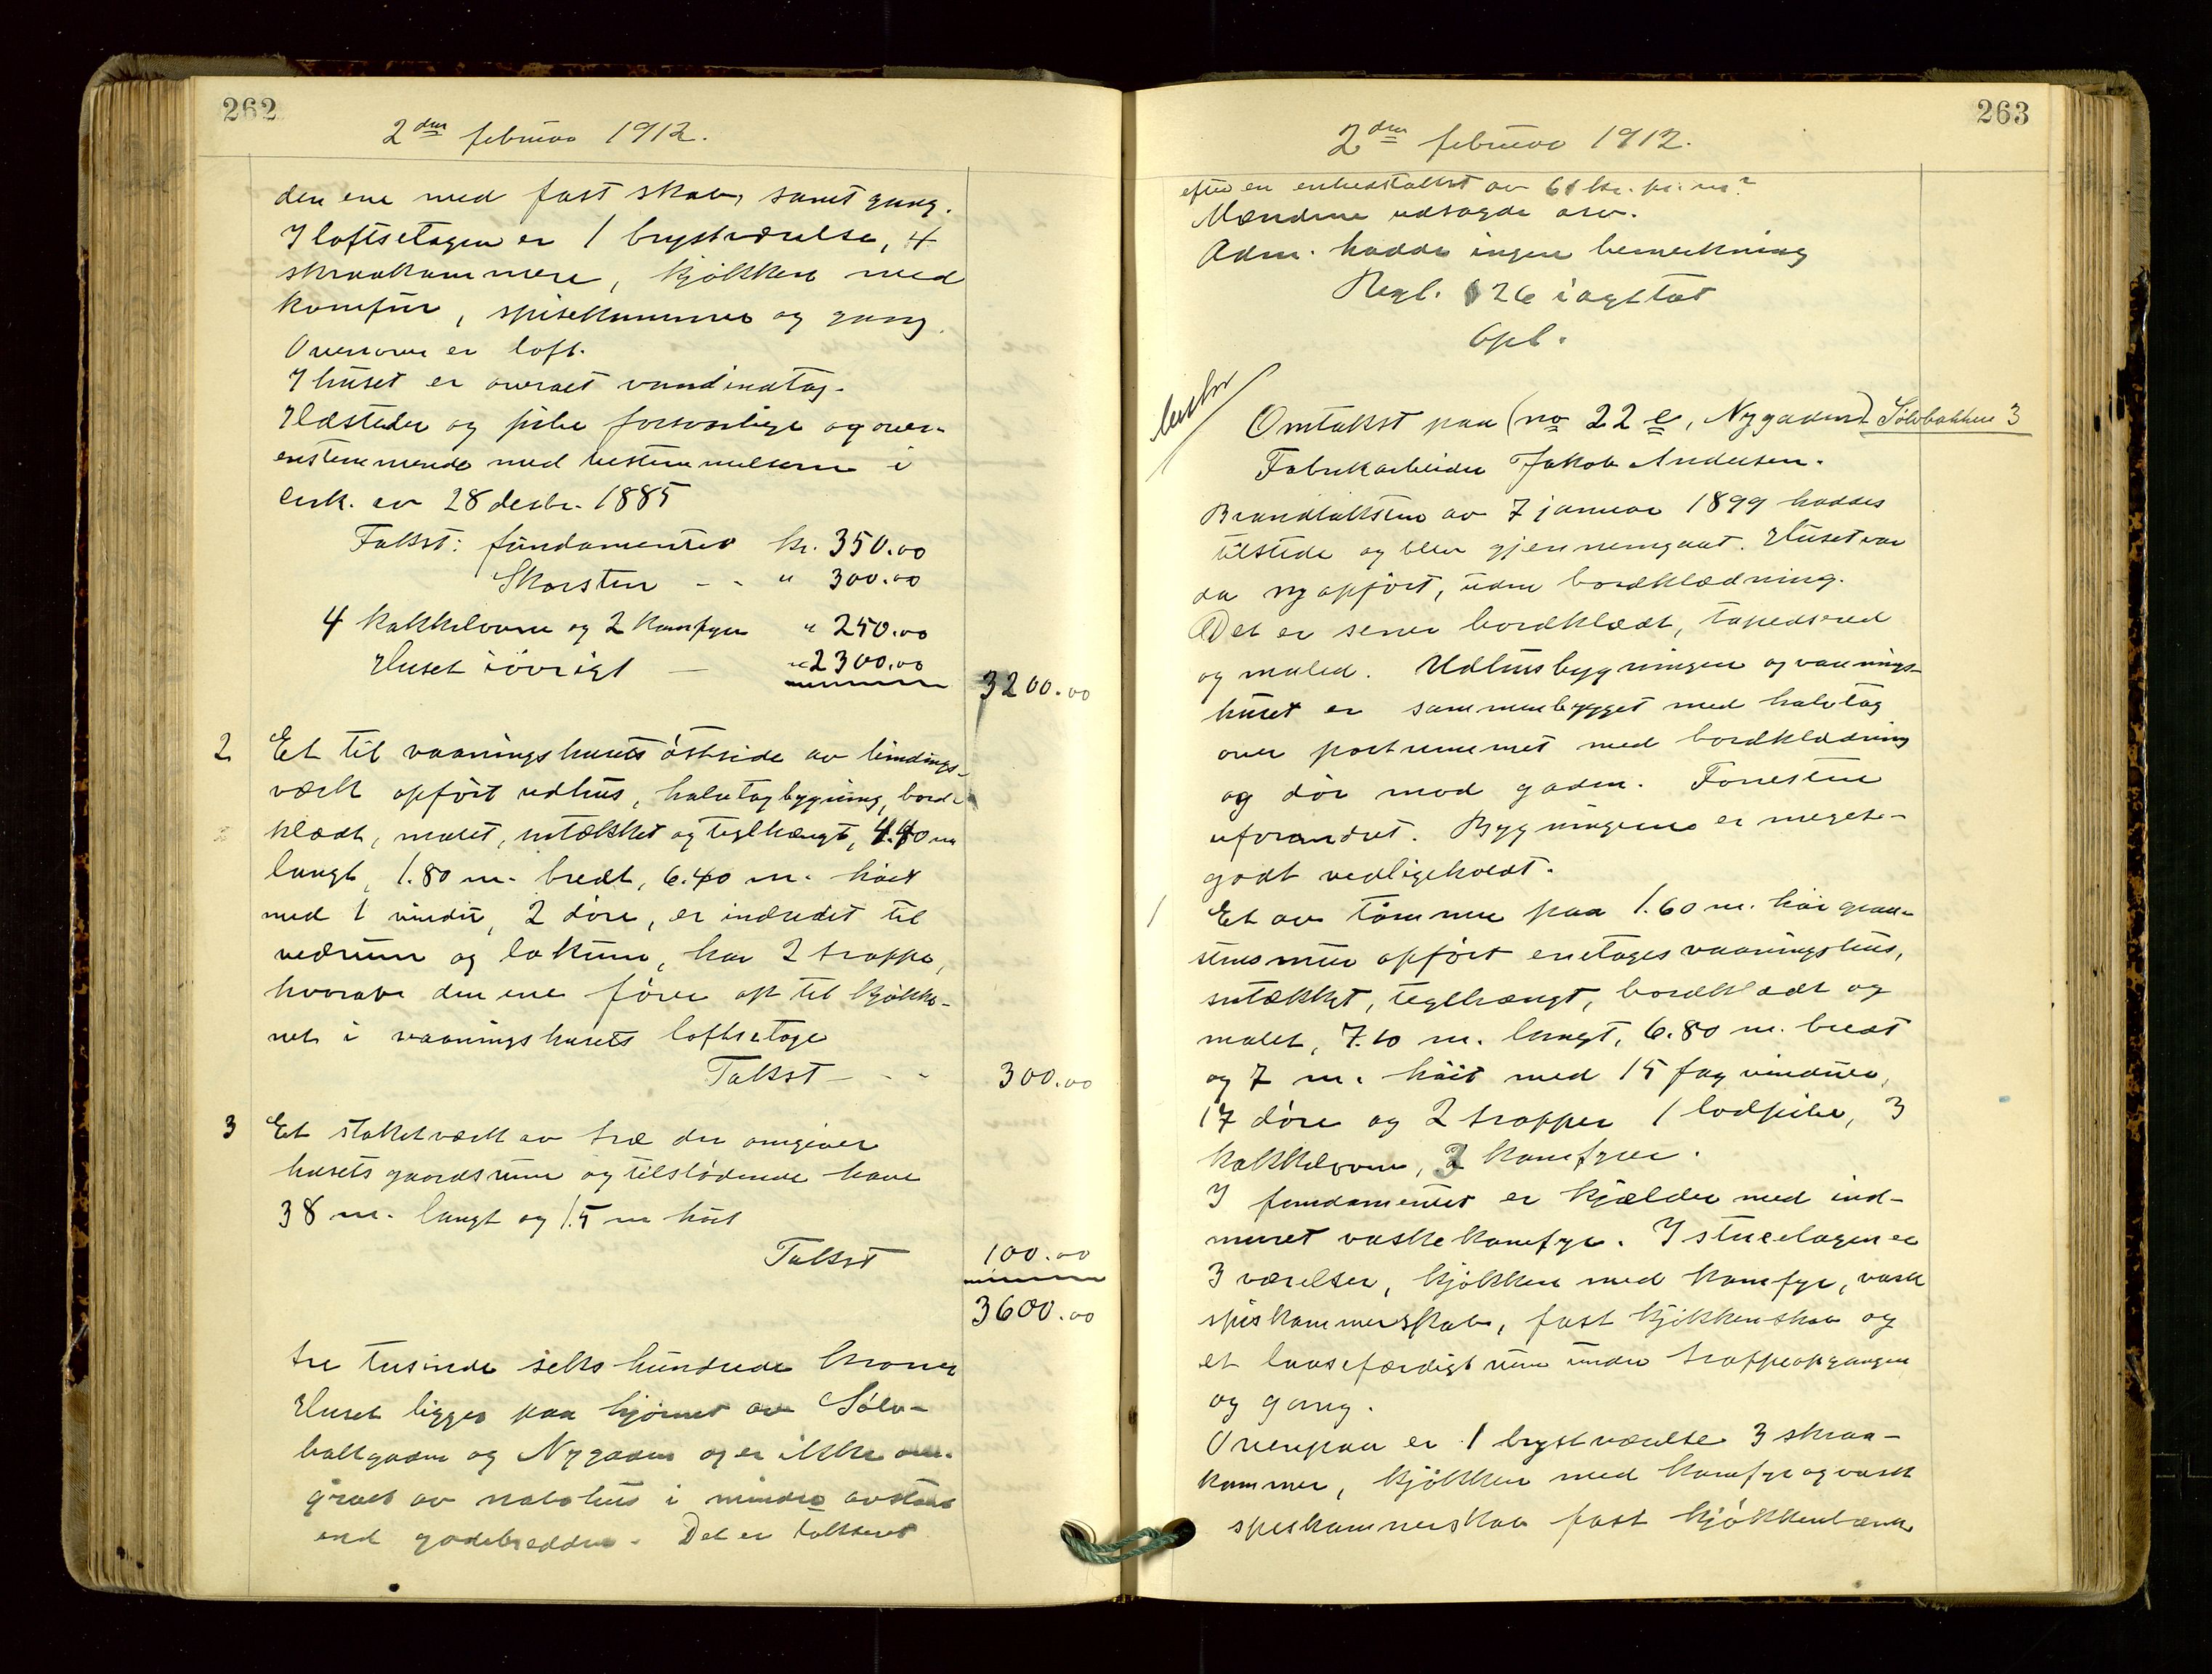 262
2den februar 1912.
den ene med fast skab, samt gang.
I loftsetagen er 1 brystværelse, 4
skraakammere, kjøkken med
komfur, spisekammer og gang.
Ovenover er loft.
I huset er overalt vandindtag.
Ildsteder og piber forsvarlige og over-
enstemmende med bestemmelserne i
cirk. av 28 desbr. 1885
Takst: fundamenter kr. 350.00
Skorsten - - " 300.00
4 kakkelovne og 2 komfyrer " 250.00
Huset iövrigt — " 2300.00
3200.00
2 Et til vaaningshusets østside av bindings-
værk opført udhus, halvtagbygning, bord-
klædt, malet, sutækket og teglhængt, 4.40 m
langt, 1.80 m. bredt, 6.40 m. høit
med 1 vindu, 2 døre, er indredet til
vedrum og lokum, har 2 trapper,
hvorav den ene fører op til kjøkke-
net i vaaningshusets loftsetage
Takst — - - 300.00
3 Et staketværk av træ der omgiver
husets gaardsrum og tilstødende have
38 m. langt og 1.5 m høit
Takst 100.00
3600.00
tre tusinde seks hundrede kroner
Huset ligger paa hjørnet av Sølv-
bakgaden og Nygaden og er ikke om-
givet av nabohus i mindre avstand
end gadebredden. Det er takseret
263
2den februar 1912.
efter en enhedstakst av 61 kr. pr. m2
Mændene udsagde osv.
Adm. hadde ingen bemerkning
Regl. § 26 iagttat
Opl.
Omtakst paa (no 22 e, Nygaden) Sølvbakken 3
Fabrikarbeider Jakob Andersen.
Brandtaksten av 7 januar 1899 haddes
tilstede og blev gjennemgaat. Huset var
da ny opført, uden bordklædning.
Det er senere bordklædt, tapedsered
og maled. Udhusbygningen og vaanings-
huset er sammenbygget med halvtag
over portrummet med bordklædning
og dør mod gaden. Forresten
uforandret. Bygningerne er meget
godt vedligeholdt.
1 Et av tømmer paa 1.60 m. høi graa-
stensmur opført enetages vaaningshus,
sutækket, teglhængt, bordklædt og
malet, 7.10 m. langt, 6.80 m. bredt
og 7 m. høit med 15 fag vinduer,
17 døre og 2 trapper 1 lodpibe, 3
kakkelovne, 3 komfyrer.
I fundamentet er kjælder med ind-
muret vaskekomfyr. I stueetagen er
3 værelser, kjøkken med komfyr, vask
spiskammerskab, fast kjøkkenskab og
et laasefærdigt rum under trappeopgangen
og gang.
Ovenpaa er 1 brystværelse 3 skraa-
kammer, kjøkken med komfyr og vask
spiskammerskab fast kjøkkenbænk